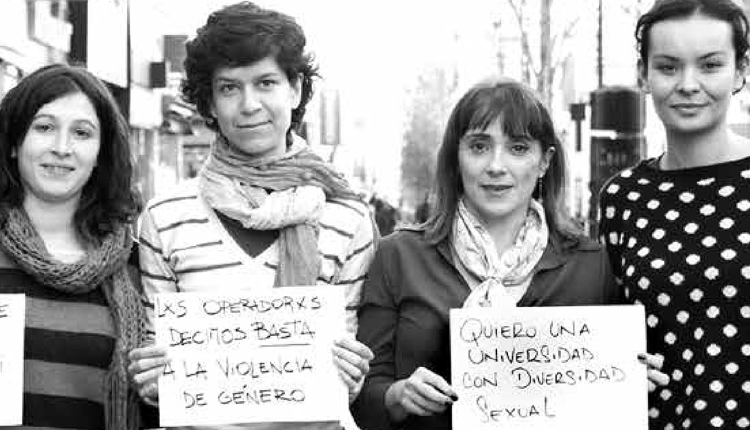 E
LXS OPERADORXS
DECIMOS BASTA
A LA VIOLENCIA
DE GÉNERO
QUIERO UNA
UNIVERSIDAD
CON DIVERSIDAD
SEXUAL